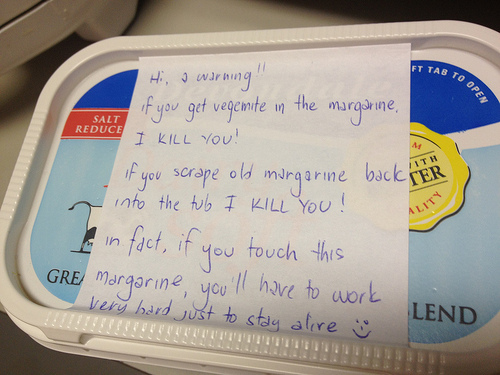 Hi, a warning!!
if you get vegemite in the margarine,
I KILL YOU!
if you scrape old margarine back
into the tub I KILL YOU!
in fact, if you touch this
margarine, you'll have to work
very hard just to stay alive
SALT
REDUCE
FT TAB TO OPEN
WITH
TER
ALITY
GREA
LEND